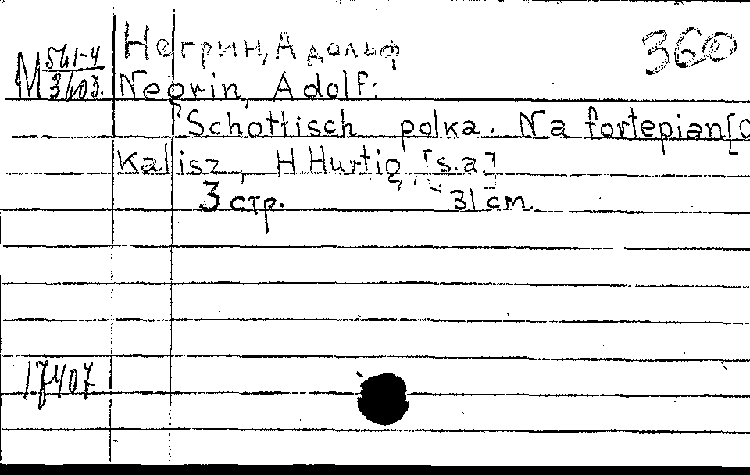 Негрин, Адольф 360
М 561-4/3603. Negrin, Adolf:
Schottisch polka. Na fortepian[o
Kalisz, H Hurtig, [s.a.]
3 стр. 31 cm.
17407